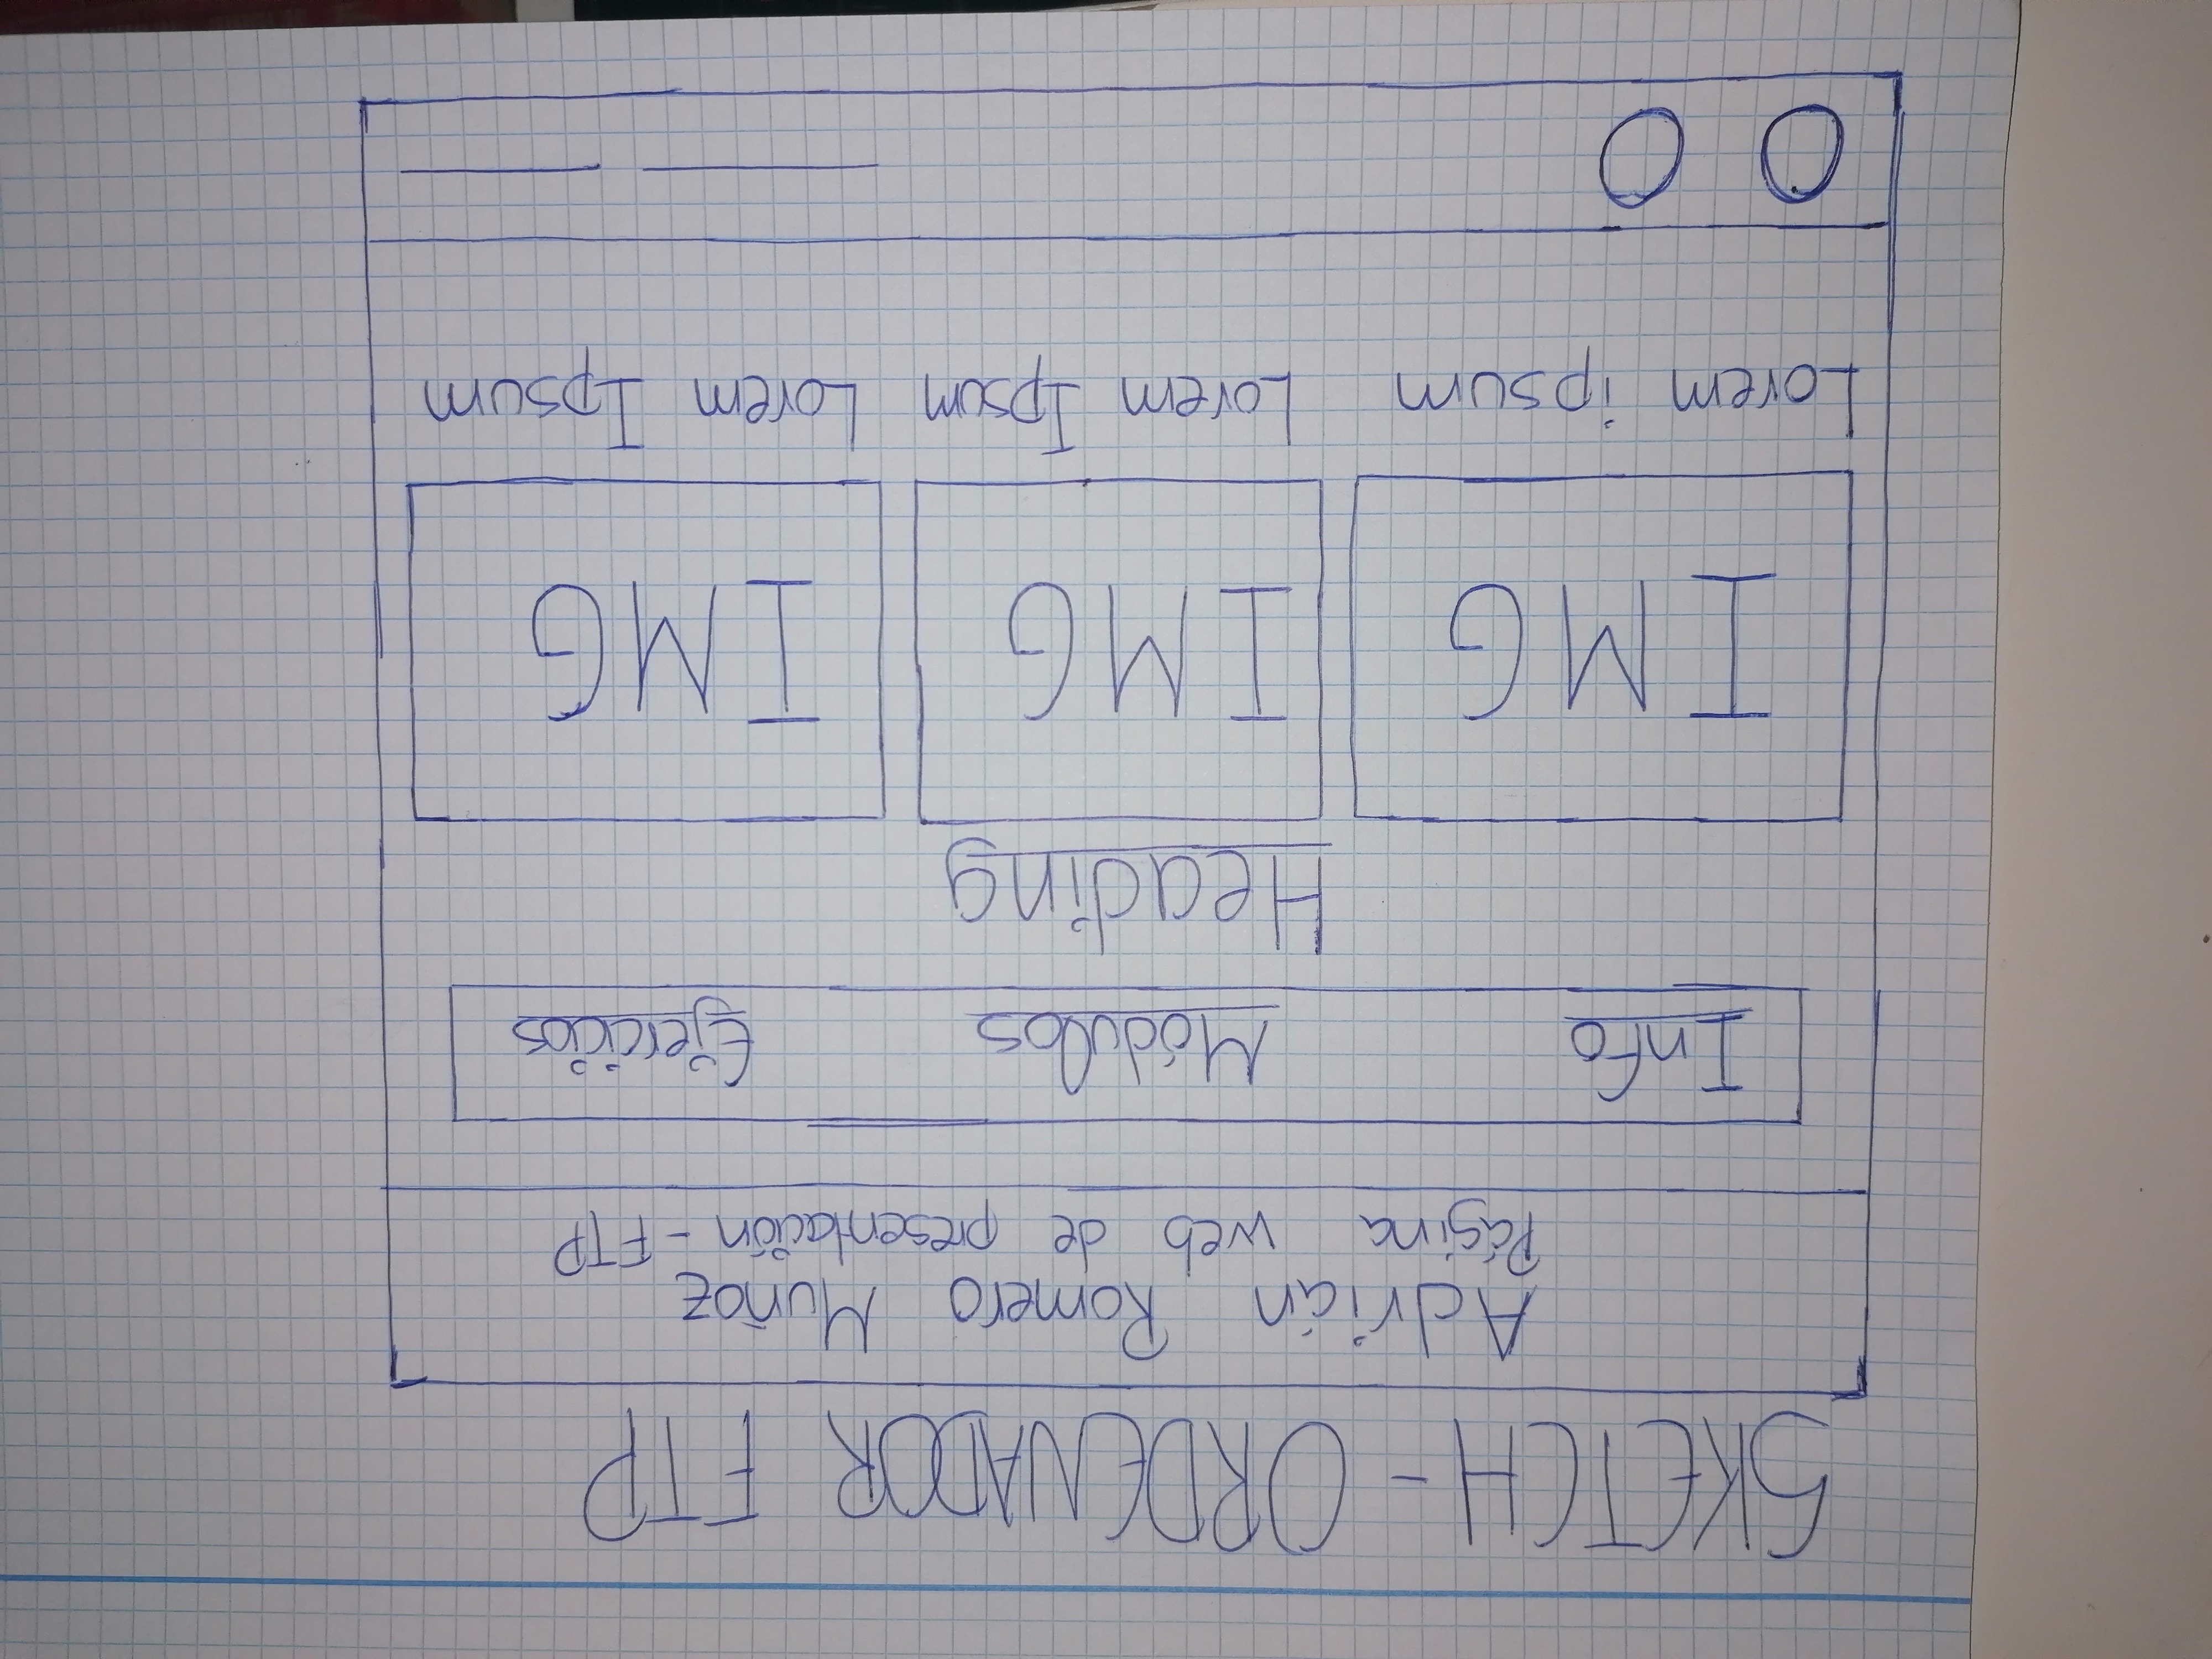 SKETCH - ORDENADOR FTP
Adrián Romero Muñoz
Página web de presentación - FTP
Info Módulos Ejercicios
Heading
IMG IMG IMG
Lorem ipsum Lorem Ipsum Lorem Ipsum